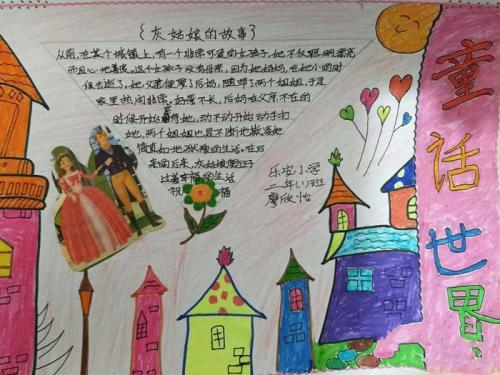 {灰姑娘的故事}
从前,在某个城镇上,有一个非常可爱的女孩子,她不仅聪明漂亮
而且心地善良,这个女孩子没有母亲,因为她妈妈,在她小的时
候去逝了,她父亲便娶了后妈,随却了两个姐姐,于是
家里热闹非常,好景不长,后妈在父亲不在的
时候开始 待她,动不动开始动手打
她,两个姐姐也是不断地欺凌她
过着幸福的生活
祝 福
乐安小学
二年(1)班
廖欣怡
童话世界